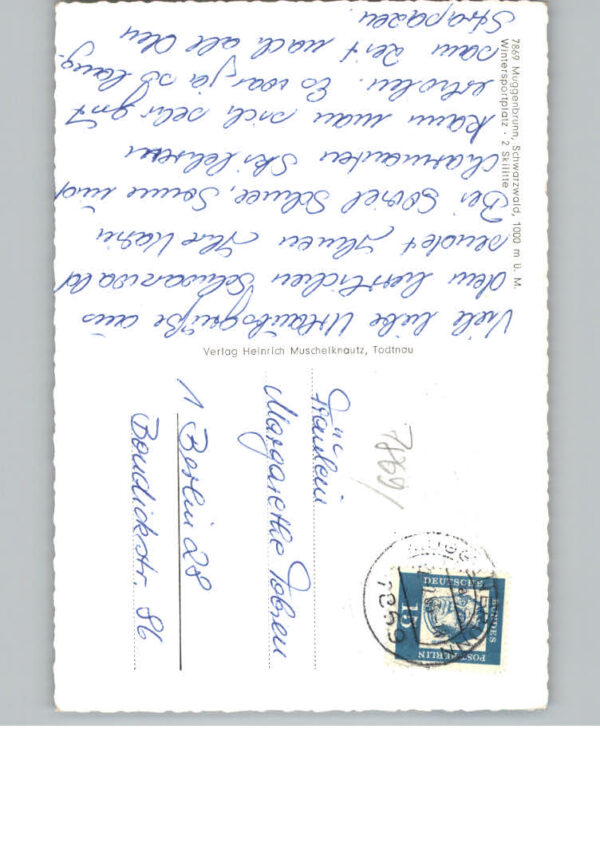 7869 Muggenbrunn, Schwarzwald, 1000 m ü. M.
Wintersportplatz · 2 Skilifte
Viele liebe Urlaubsgrüße aus
dem herrlichen Schwarzwald
sendet Ihnen Ihre Karin
Bei soviel Schnee, Sonne und
charmanten Skilehrern
kann man sich sehr gut
erholen. Es war ja so lang-
sam Zeit nach all den
Strapazen
Verlag Heinrich Muschelknautz, Todtnau
Fräulein
Margarethe
1 Berlin 28
Bondickstr. 86
7869/
DEUTSCHE
BUNDES
POST BERLIN
15
7869